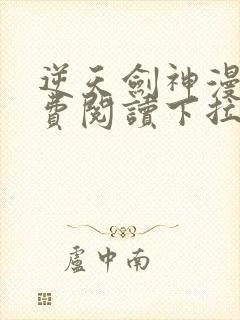 逆天劍神漫
費閱讀下拉
盧中南